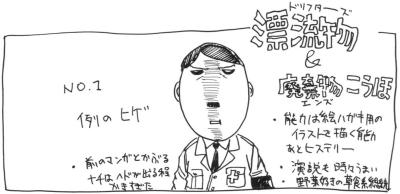 ドリフターズ
漂流物
&
廃棄物こうほ
エンズ
NO.1
例のヒゲ
・前のマンガとかぶる
ナチはヘドが出る程
かきすぎた
・能力は絵ハガキ用の
イラストを描く能力
あとヒステリー
・演説も時々うまい
・野菜好きの草食系総統